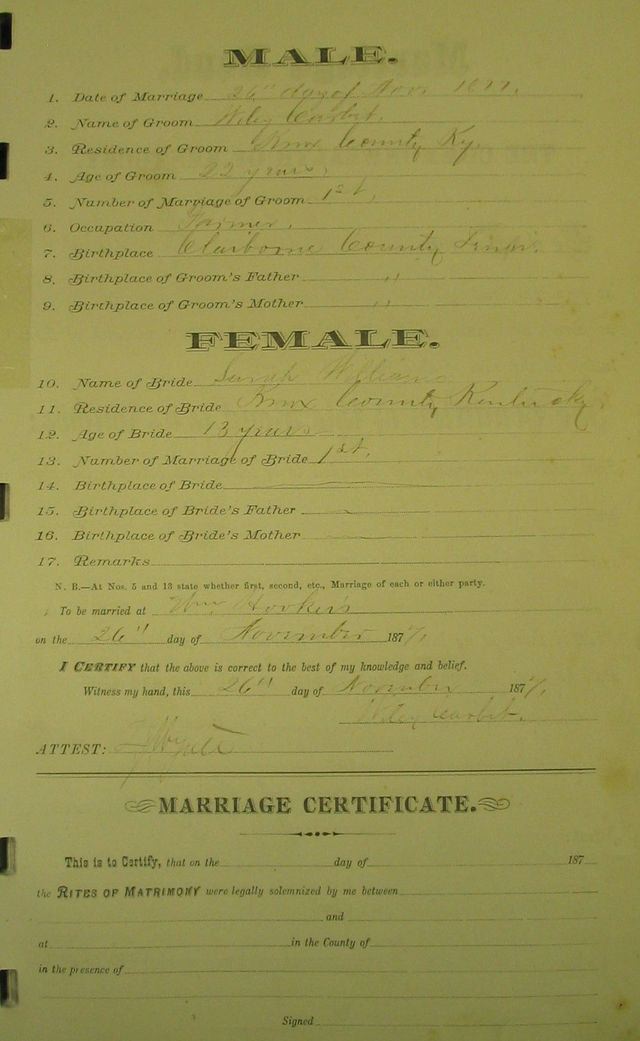 MALE.
1. Date of Marriage 26" day of Nov. 1877.
2. Name of Groom Wiley
3. Residence of Groom Knox County Ky.
4. Age of Groom 22 years,
5. Number of Marriage of Groom 1st,
6. Occupation Farmer.
7. Birthplace Claiborne County Tenn.
8. Birthplace of Groom's Father "
9. Birthplace of Groom's Mother "
FEMALE.
10. Name of Bride Sarah Williams
11. Residence of Bride Knox County Kentucky,
12. Age of Bride 13 years
13. Number of Marriage of Bride 1st,
14. Birthplace of Bride
15. Birthplace of Bride's Father
16. Birthplace of Bride's Mother
17. Remarks
N. B.—At Nos. 5 and 13 state whether first, second, etc., Marriage of each or either party.
To be married at Wm Hooker's
on the 26" day of November 1877,
I CERTIFY that the above is correct to the best of my knowledge and belief.
Witness my hand, this 26" day of November 1877,
Wiley
ATTEST:
MARRIAGE CERTIFICATE.
This is to Certify, that on the day of 187
the RITES OF MATRIMONY were legally solemnized by me between
and
at in the County of
in the presence of
Signed